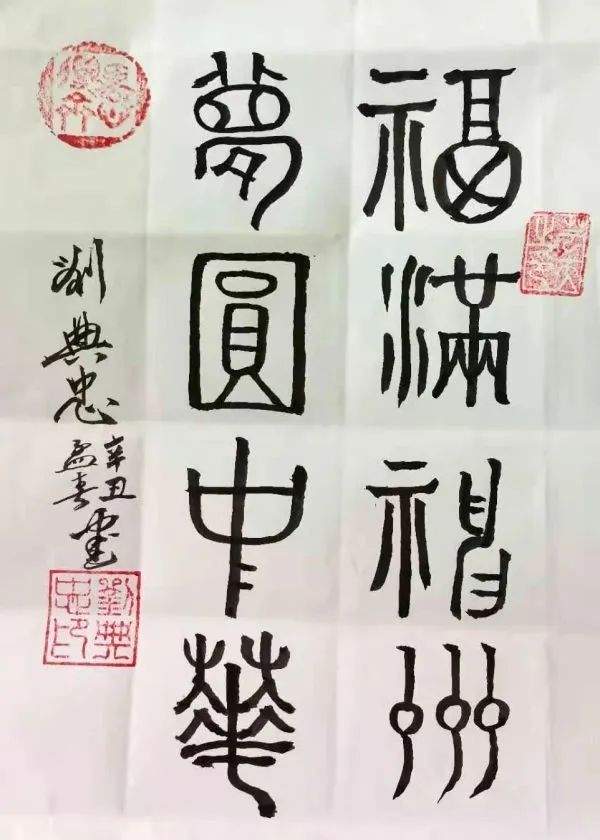 福滿神州
夢圓中華
劉典忠
辛丑
孟春書
劉典忠印